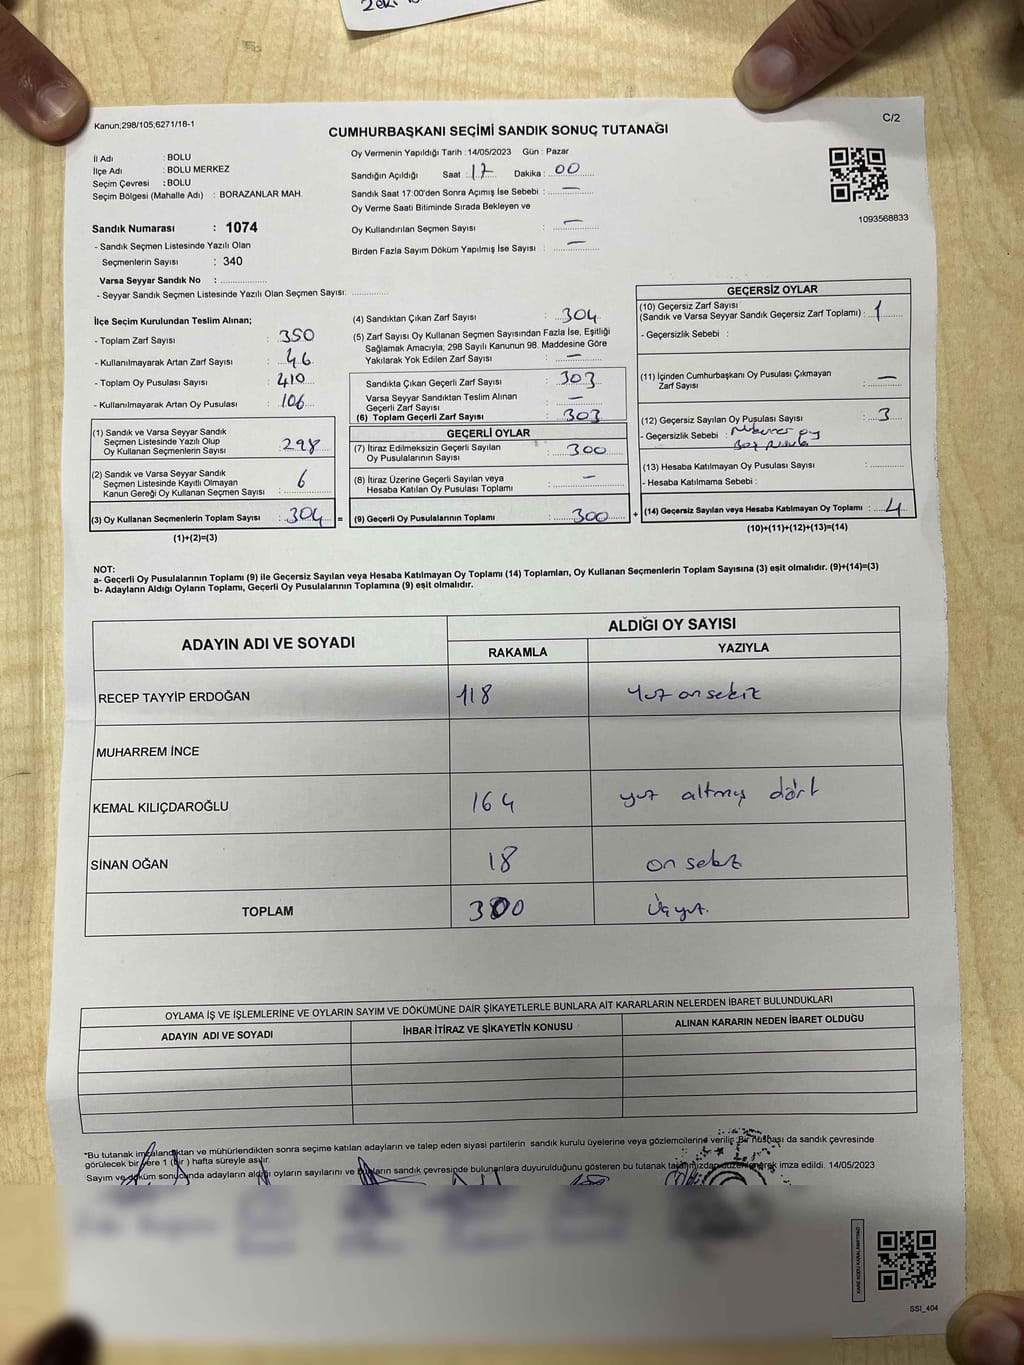 Zeki
Kanun;298/105;6271/18-1
C/2
CUMHURBAŞKANI SEÇİMİ SANDIK SONUÇ TUTANAĞI
İl Adı : BOLU
İlçe Adı : BOLU MERKEZ
Seçim Çevresi : BOLU
Seçim Bölgesi (Mahalle Adı) : BORAZANLAR MAH.
Oy Vermenin Yapıldığı Tarih : 14/05/2023 Gün : Pazar
Sandığın Açıldığı Saat : 17 Dakika : 00
Sandık Saat 17:00'den Sonra Açımış İse Sebebi : —
Oy Verme Saati Bitiminde Sırada Bekleyen ve
Oy Kullandırılan Seçmen Sayısı : —
Birden Fazla Sayım Döküm Yapılmış İse Sayısı : —
1093568833
Sandık Numarası : 1074
- Sandık Seçmen Listesinde Yazılı Olan
Seçmenlerin Sayısı : 340
Varsa Seyyar Sandık No :
- Seyyar Sandık Seçmen Listesinde Yazılı Olan Seçmen Sayısı:
İlçe Seçim Kurulundan Teslim Alınan;
- Toplam Zarf Sayısı : 350
- Kullanılmayarak Artan Zarf Sayısı : 46
- Toplam Oy Pusulası Sayısı : 410
- Kullanılmayarak Artan Oy Pusulası : 106
(1) Sandık ve Varsa Seyyar Sandık
Seçmen Listesinde Yazılı Olup
Oy Kullanan Seçmenlerin Sayısı : 298
(2) Sandık ve Varsa Seyyar Sandık
Seçmen Listesinde Kayıtlı Olmayan
Kanun Gereği Oy Kullanan Seçmen Sayısı : 6
(3) Oy Kullanan Seçmenlerin Toplam Sayısı : 304 =
(1)+(2)=(3)
(4) Sandıktan Çıkan Zarf Sayısı : 304
(5) Zarf Sayısı Oy Kullanan Seçmen Sayısından Fazla İse, Eşitliği
Sağlamak Amacıyla; 298 Sayılı Kanunun 98. Maddesine Göre
Yakılarak Yok Edilen Zarf Sayısı : —
Sandıkta Çıkan Geçerli Zarf Sayısı : 303
Varsa Seyyar Sandıktan Teslim Alınan
Geçerli Zarf Sayısı : —
(6) Toplam Geçerli Zarf Sayısı : 303
GEÇERLİ OYLAR
(7) İtiraz Edilmeksizin Geçerli Sayılan
Oy Pusulalarının Sayısı : 300
(8) İtiraz Üzerine Geçerli Sayılan veya
Hesaba Katılan Oy Pusulası Toplamı : —
(9) Geçerli Oy Pusulalarının Toplamı : 300 +
GEÇERSİZ OYLAR
(10) Geçersiz Zarf Sayısı
(Sandık ve Varsa Seyyar Sandık Geçersiz Zarf Toplamı) : 1
- Geçersizlik Sebebi :
(11) İçinden Cumhurbaşkanı Oy Pusulası Çıkmayan
Zarf Sayısı : —
(12) Geçersiz Sayılan Oy Pusulası Sayısı : 3
- Geçersizlik Sebebi : oy
(13) Hesaba Katılmayan Oy Pusulası Sayısı :
- Hesaba Katılmama Sebebi :
(14) Geçersiz Sayılan veya Hesaba Katılmayan Oy Toplamı : 4
(10)+(11)+(12)+(13)=(14)
NOT:
a- Geçerli Oy Pusulalarının Toplamı (9) ile Geçersiz Sayılan veya Hesaba Katılmayan Oy Toplamı (14) Toplamları, Oy Kullanan Seçmenlerin Toplam Sayısına (3) eşit olmalıdır. (9)+(14)=(3)
b- Adayların Aldığı Oyların Toplamı, Geçerli Oy Pusulalarının Toplamına (9) eşit olmalıdır.
ADAYIN ADI VE SOYADI
ALDIĞI OY SAYISI
RAKAMLA YAZIYLA
RECEP TAYYİP ERDOĞAN 118 yüz on sekiz
MUHARREM İNCE
KEMAL KILIÇDAROĞLU 164 yüz altmış dört
SİNAN OĞAN 18 on sekiz
TOPLAM 300 Üçyüz.
OYLAMA İŞ VE İŞLEMLERİNE VE OYLARIN SAYIM VE DÖKÜMÜNE DAİR ŞİKAYETLERLE BUNLARA AİT KARARLARIN NELERDEN İBARET BULUNDUKLARI
ADAYIN ADI VE SOYADI İHBAR İTİRAZ VE ŞİKAYETİN KONUSU ALINAN KARARIN NEDEN İBARET OLDUĞU
*Bu tutanak imzalandıktan ve mühürlendikten sonra seçime katılan adayların ve talep eden siyasi partilerin sandık kurulu üyelerine veya gözlemcilerine verilir. Bir nüshası da sandık çevresinde
görülecek bir yere 1 (bir ) hafta süreyle asılır.
Sayım ve döküm sonucunda adayların aldığı oyların sayılarını ve bunların sandık çevresinde bulunanlara duyurulduğunu gösteren bu tutanak tarafımızdan düzenlenerek imza edildi. 14/05/2023
KARE KODU KARALAMAYINIZ!
SSI_404